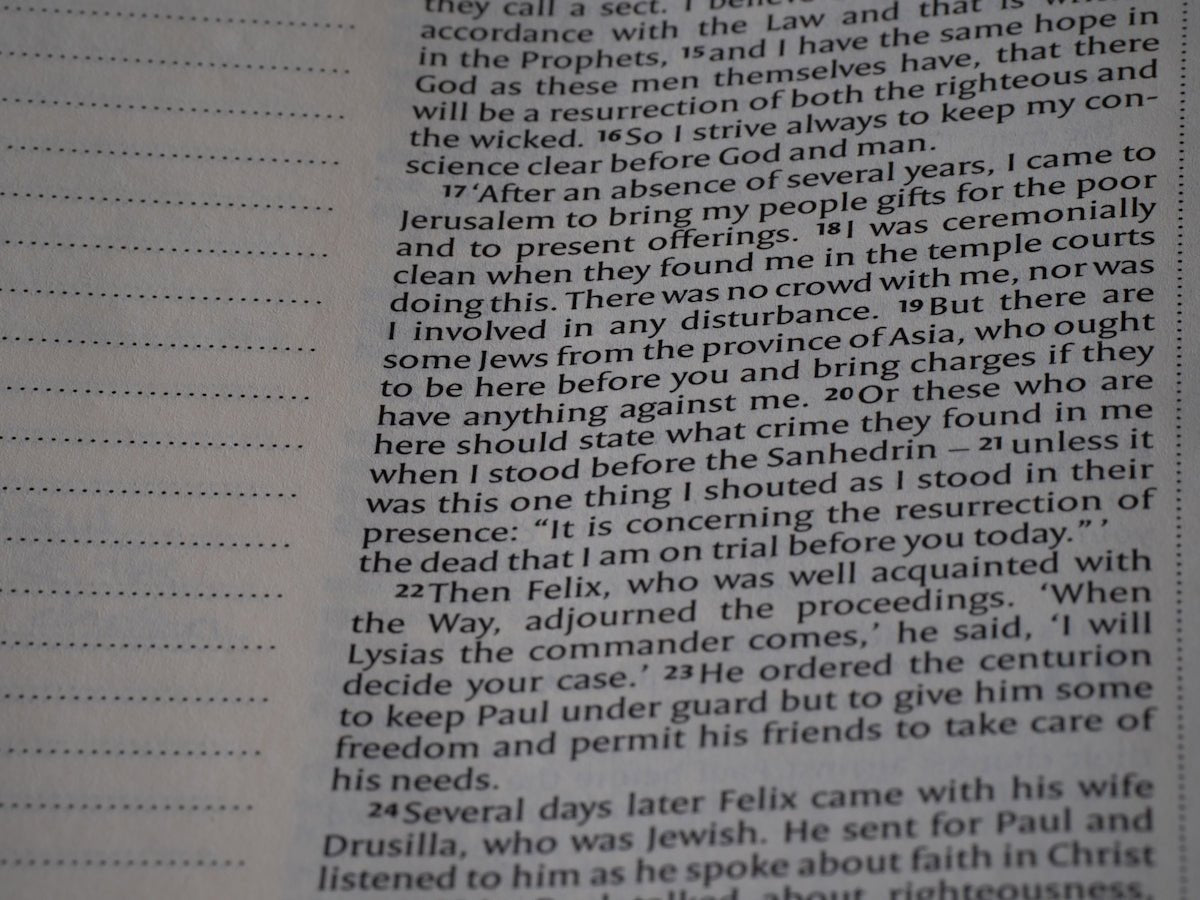 they call a sect. I believe
accordance with the Law and that is
in the Prophets, 15and I have the same hope in
God as these men themselves have, that there
will be a resurrection of both the righteous and
the wicked. 16So I strive always to keep my con-
science clear before God and man.
17‘After an absence of several years, I came to
Jerusalem to bring my people gifts for the poor
and to present offerings. 18I was ceremonially
clean when they found me in the temple courts
doing this. There was no crowd with me, nor was
I involved in any disturbance. 19But there are
some Jews from the province of Asia, who ought
to be here before you and bring charges if they
have anything against me. 20Or these who are
here should state what crime they found in me
when I stood before the Sanhedrin – 21unless it
was this one thing I shouted as I stood in their
presence: “It is concerning the resurrection of
the dead that I am on trial before you today.” ’
22Then Felix, who was well acquainted with
the Way, adjourned the proceedings. ‘When
Lysias the commander comes,’ he said, ‘I will
decide your case.’ 23He ordered the centurion
to keep Paul under guard but to give him some
freedom and permit his friends to take care of
his needs.
24Several days later Felix came with his wife
Drusilla, who was Jewish. He sent for Paul and
listened to him as he spoke about faith in Christ
talked about righteousness,